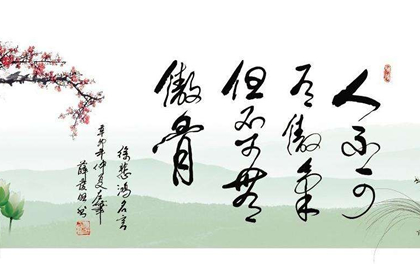 人不可
有傲氣
但不可無
傲骨
徐悲鴻名言
辛卯年仲夏